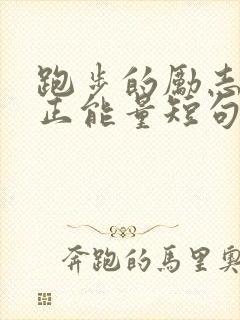 跑步的勵志
正能量短句
奔跑的馬里奧